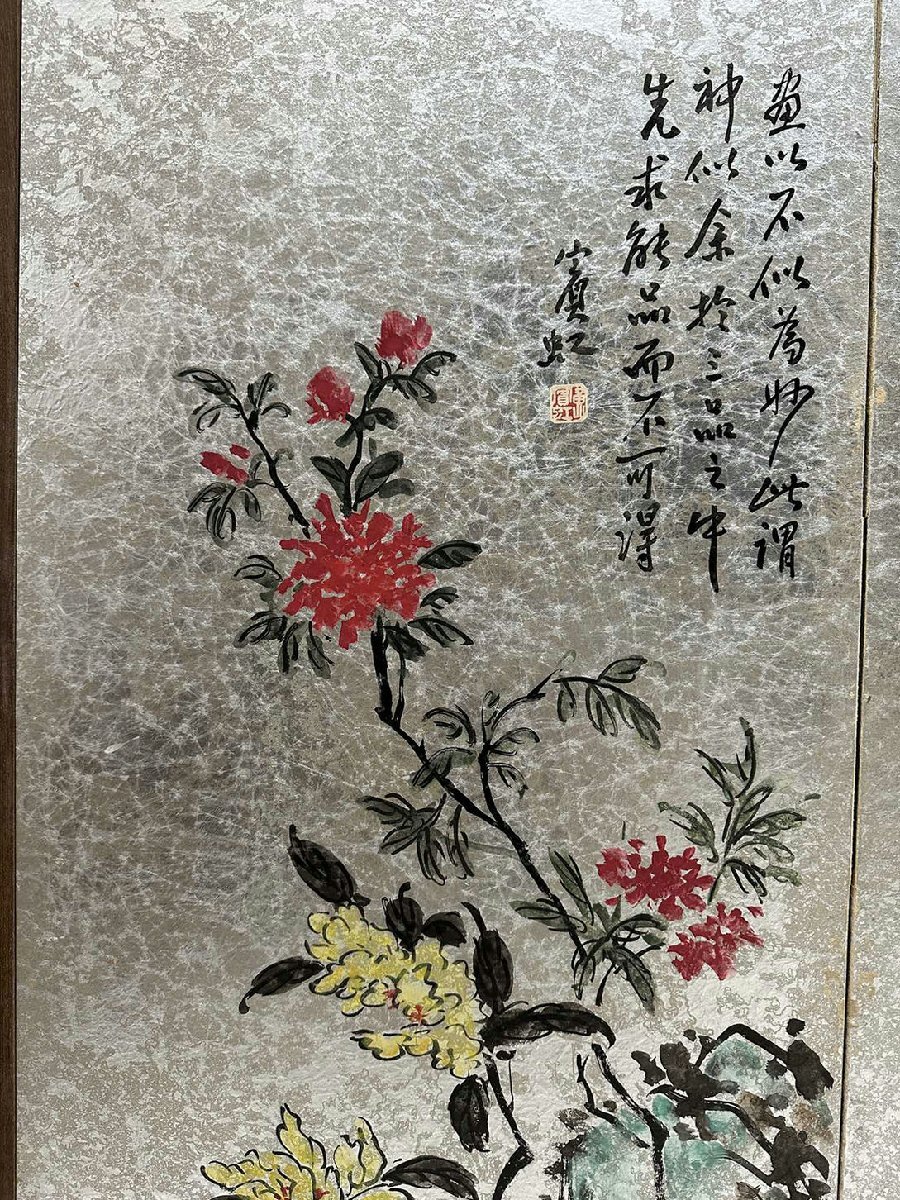 畫以不似為妙此謂
神似余於三品之中
先求能品而不可得
賓虹